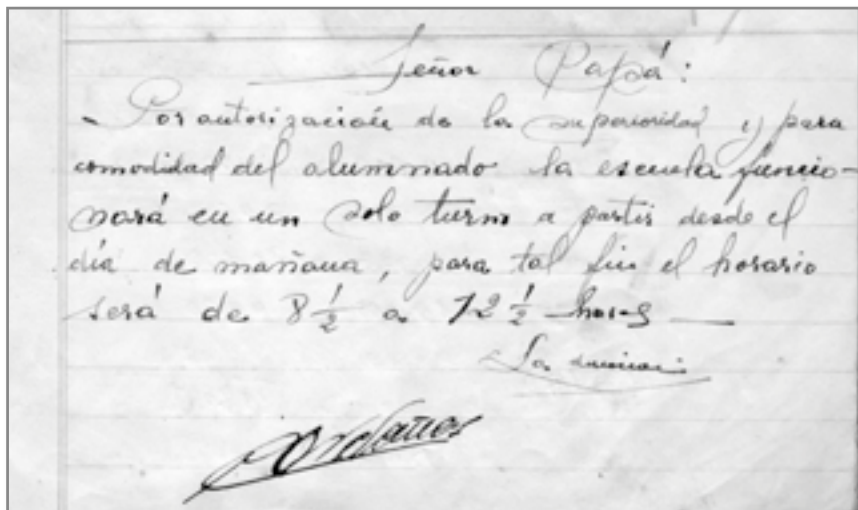 Señor Papá:
Por autorización de la superioridad y para
comodidad del alumnado la escuela funcio-
nará en un solo turno a partir desde el
día de mañana, para tal fin el horario
será de 8 1/2 a 12 1/2 horas —
La